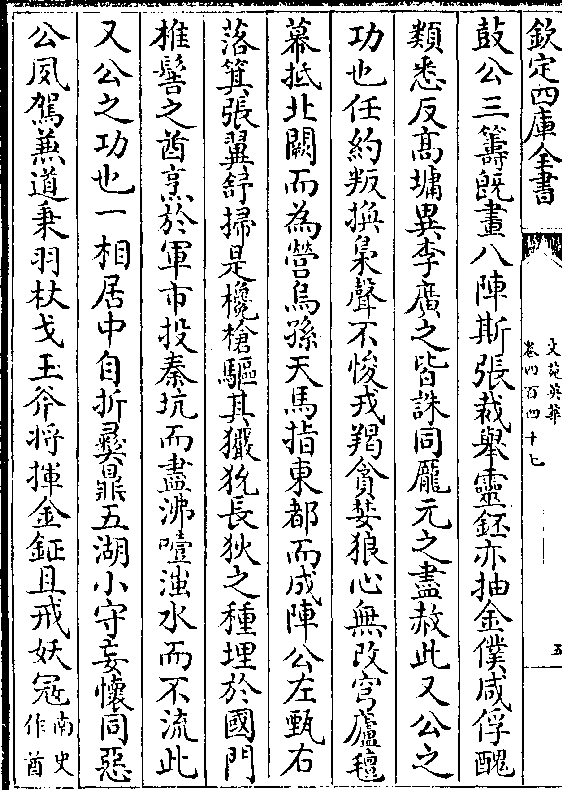 欽定四庫全書
文苑英華
卷四百四十七
五
鼓公三籌旣畫八陣斯張裁舉靈鉟亦抽金僕咸俘醜
類悉反髙墉異李廣之皆誅同龎元之盡赦此又公之
功也任約叛換梟聲不悛戎羯貪婪狼心無改穹廬氊
幕抵北闕而為營烏孫天馬指東都而成陣公左甄右
落箕張翼舒掃是欃槍驅其獫狁長狄之種埋於國門
椎髻之酋烹於軍市投秦坑而盡沸噎濰水而不流此
又公之功也一相居中自折彞鼎五湖小守妄懷同惡
公夙駕兼道秉羽杖戈玉斧將揮金鉦且戒妖冦南史作酋